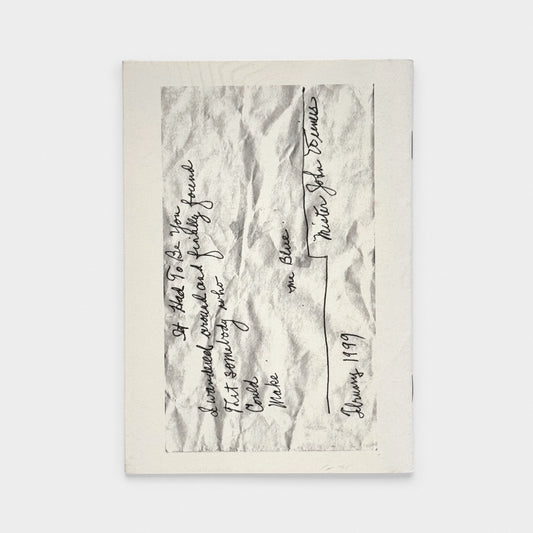 It Had To Be You
I wandered around and finally found
That somebody who
Could
Make
me Blue.
Mister John Wieners
1999